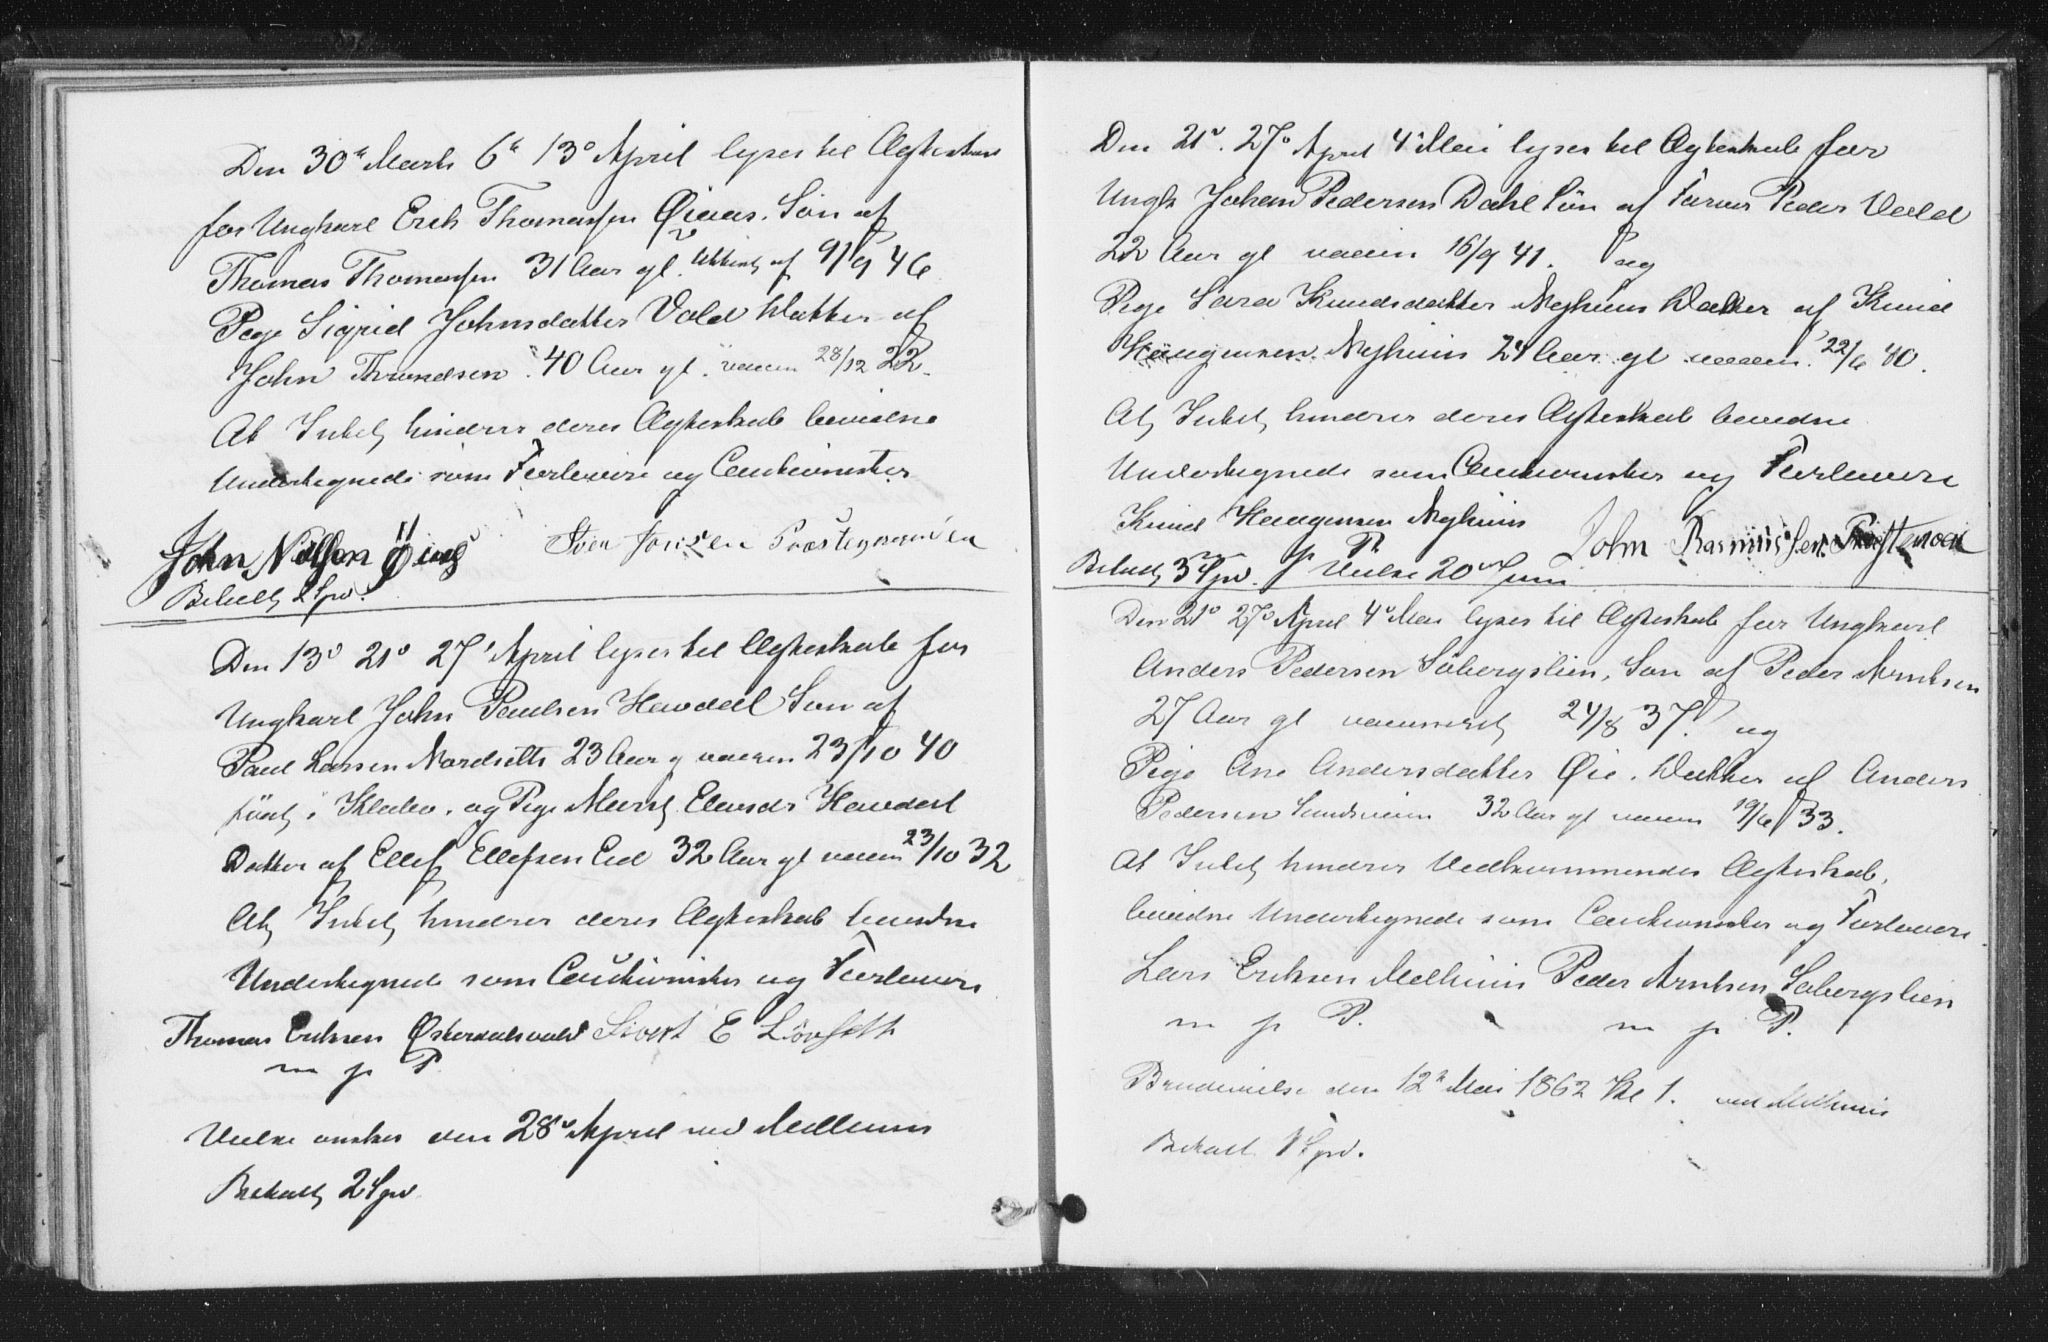 Den 30te Marts 6te 13de April lyses til Ægteskab
for Ungkarl Erik Thomassen Øiaas. Søn af
Thomas Thomassen 31 Aar gl. Udkast af 9/9 46
Pige Sigrid Johnsdatter Vold Datter af
John Throndsen 40 Aar gl. vaccin 28/12 22.
At Intet hindrer deres Ægteskab bevidne
Undertegnede som Forlovere og Cautionister
John Nilssen Öiaas Sven Jonsen
Betalt 2 Spd.
Den 13de 21de 27de April lyses til Ægteskab for
Ungkarl John Paulsen Havdal Søn af
Paul Larsen Nordseth 23 Aar g vaccin 23/10 40
født i Klæbo. og Pige Marit Elevsdr Havdal
Datter af Ellef Ellefsen Eid 32 Aar gl vaccin 23/10 32
At Intet hindrer deres Ægteskab bevidne
Undertegnede som Cautionister og Forlovere
Thomas Eriksen Sivert E Løvseth
m p P.
Vielse ønskes den 28de April ved Melhuus
Betalt 2 Spd
Den 21de. 27de April 4de Mai lyses til Ægteskab for
Ungk Johan Pedersen Dahl Søn af Peder Vold
22 Aar gl vaccin 16/9 41. og
Pige Sara Knudsdatter Nyhuus Datter af Knud
Haagensen Nyhuus 24 Aar gl vaccin 22/6 40.
At Intet hindrer deres Ægteskab bevidne
Undertegnede som Cautionister og Forlovere
Knud Haagensen Nyhuus John Rasmussen
m p P.
Betalt 3 Spd. Vielse 20de Juni
Den 21de 27de April 4de Mai lyses til Ægteskab for Ungkarl
Anders Pedersen Søbergslien, Søn af Peder Arntsen
27 Aar gl vaccineret 24/8 37. og
Pige Ane Andersdatter Øie. Datter af Anders
Pedersen 32 Aar gl vaccin 19/6 33.
At Intet hindrer Vedkommendes Ægteskab,
bevidne Undertegnede som Cautionister og Forlovere
Lars Eriksen Melhuus Peder Arntsen Søbergslien
m p P. m p P.
Brudevielse den 12te Mai 1862 Kl 1. ved Melhuus
Betalt 1 Spd.